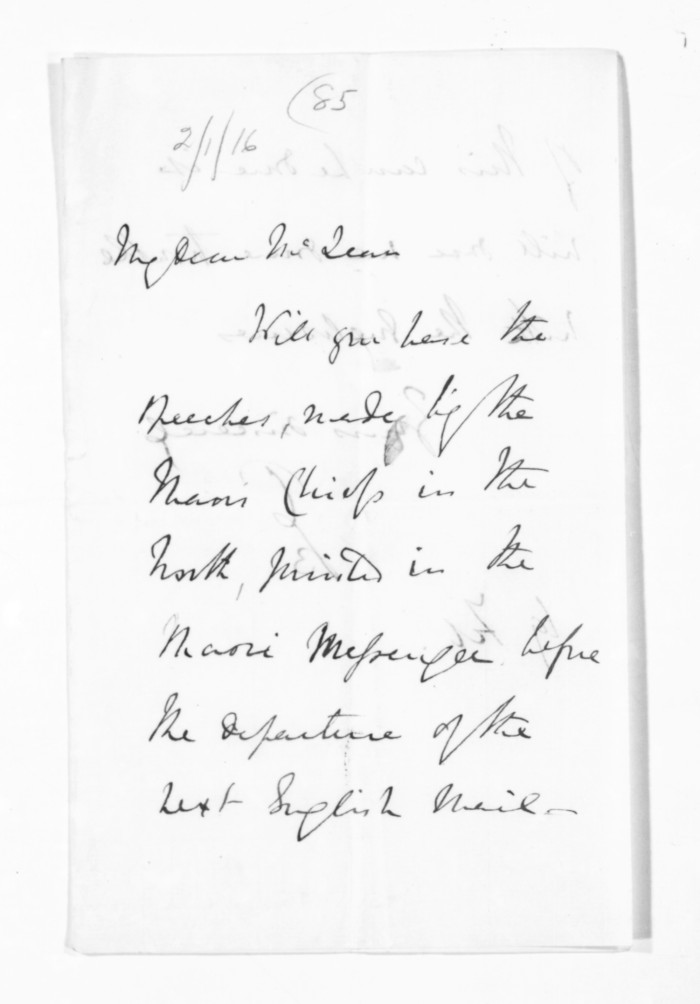 (85
2/1/16
My dear McLean
Will you have the
speeches, made by the
Maori Chiefs in the
North, printed in the
Maori Messenger before
the departure of the
next English Mail —